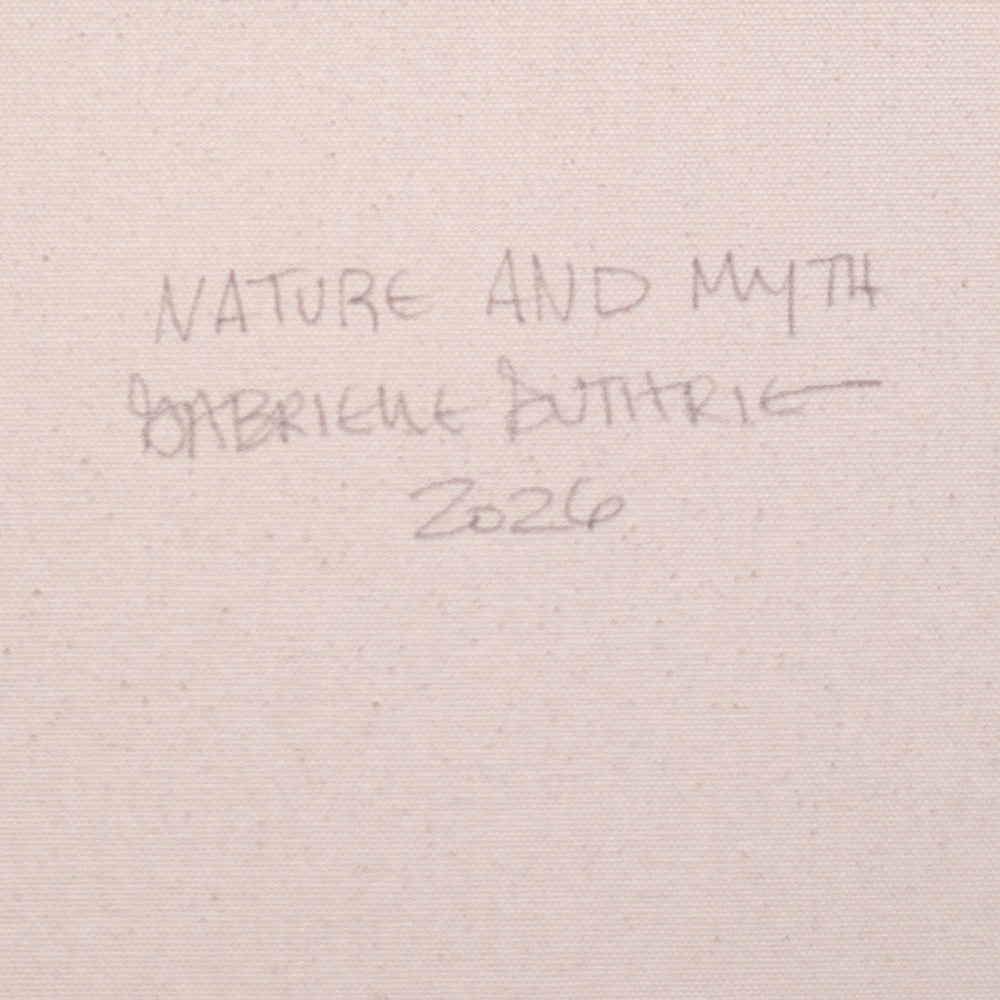 NATURE AND MYTH
GABRIELLE GUTHRIE
2026